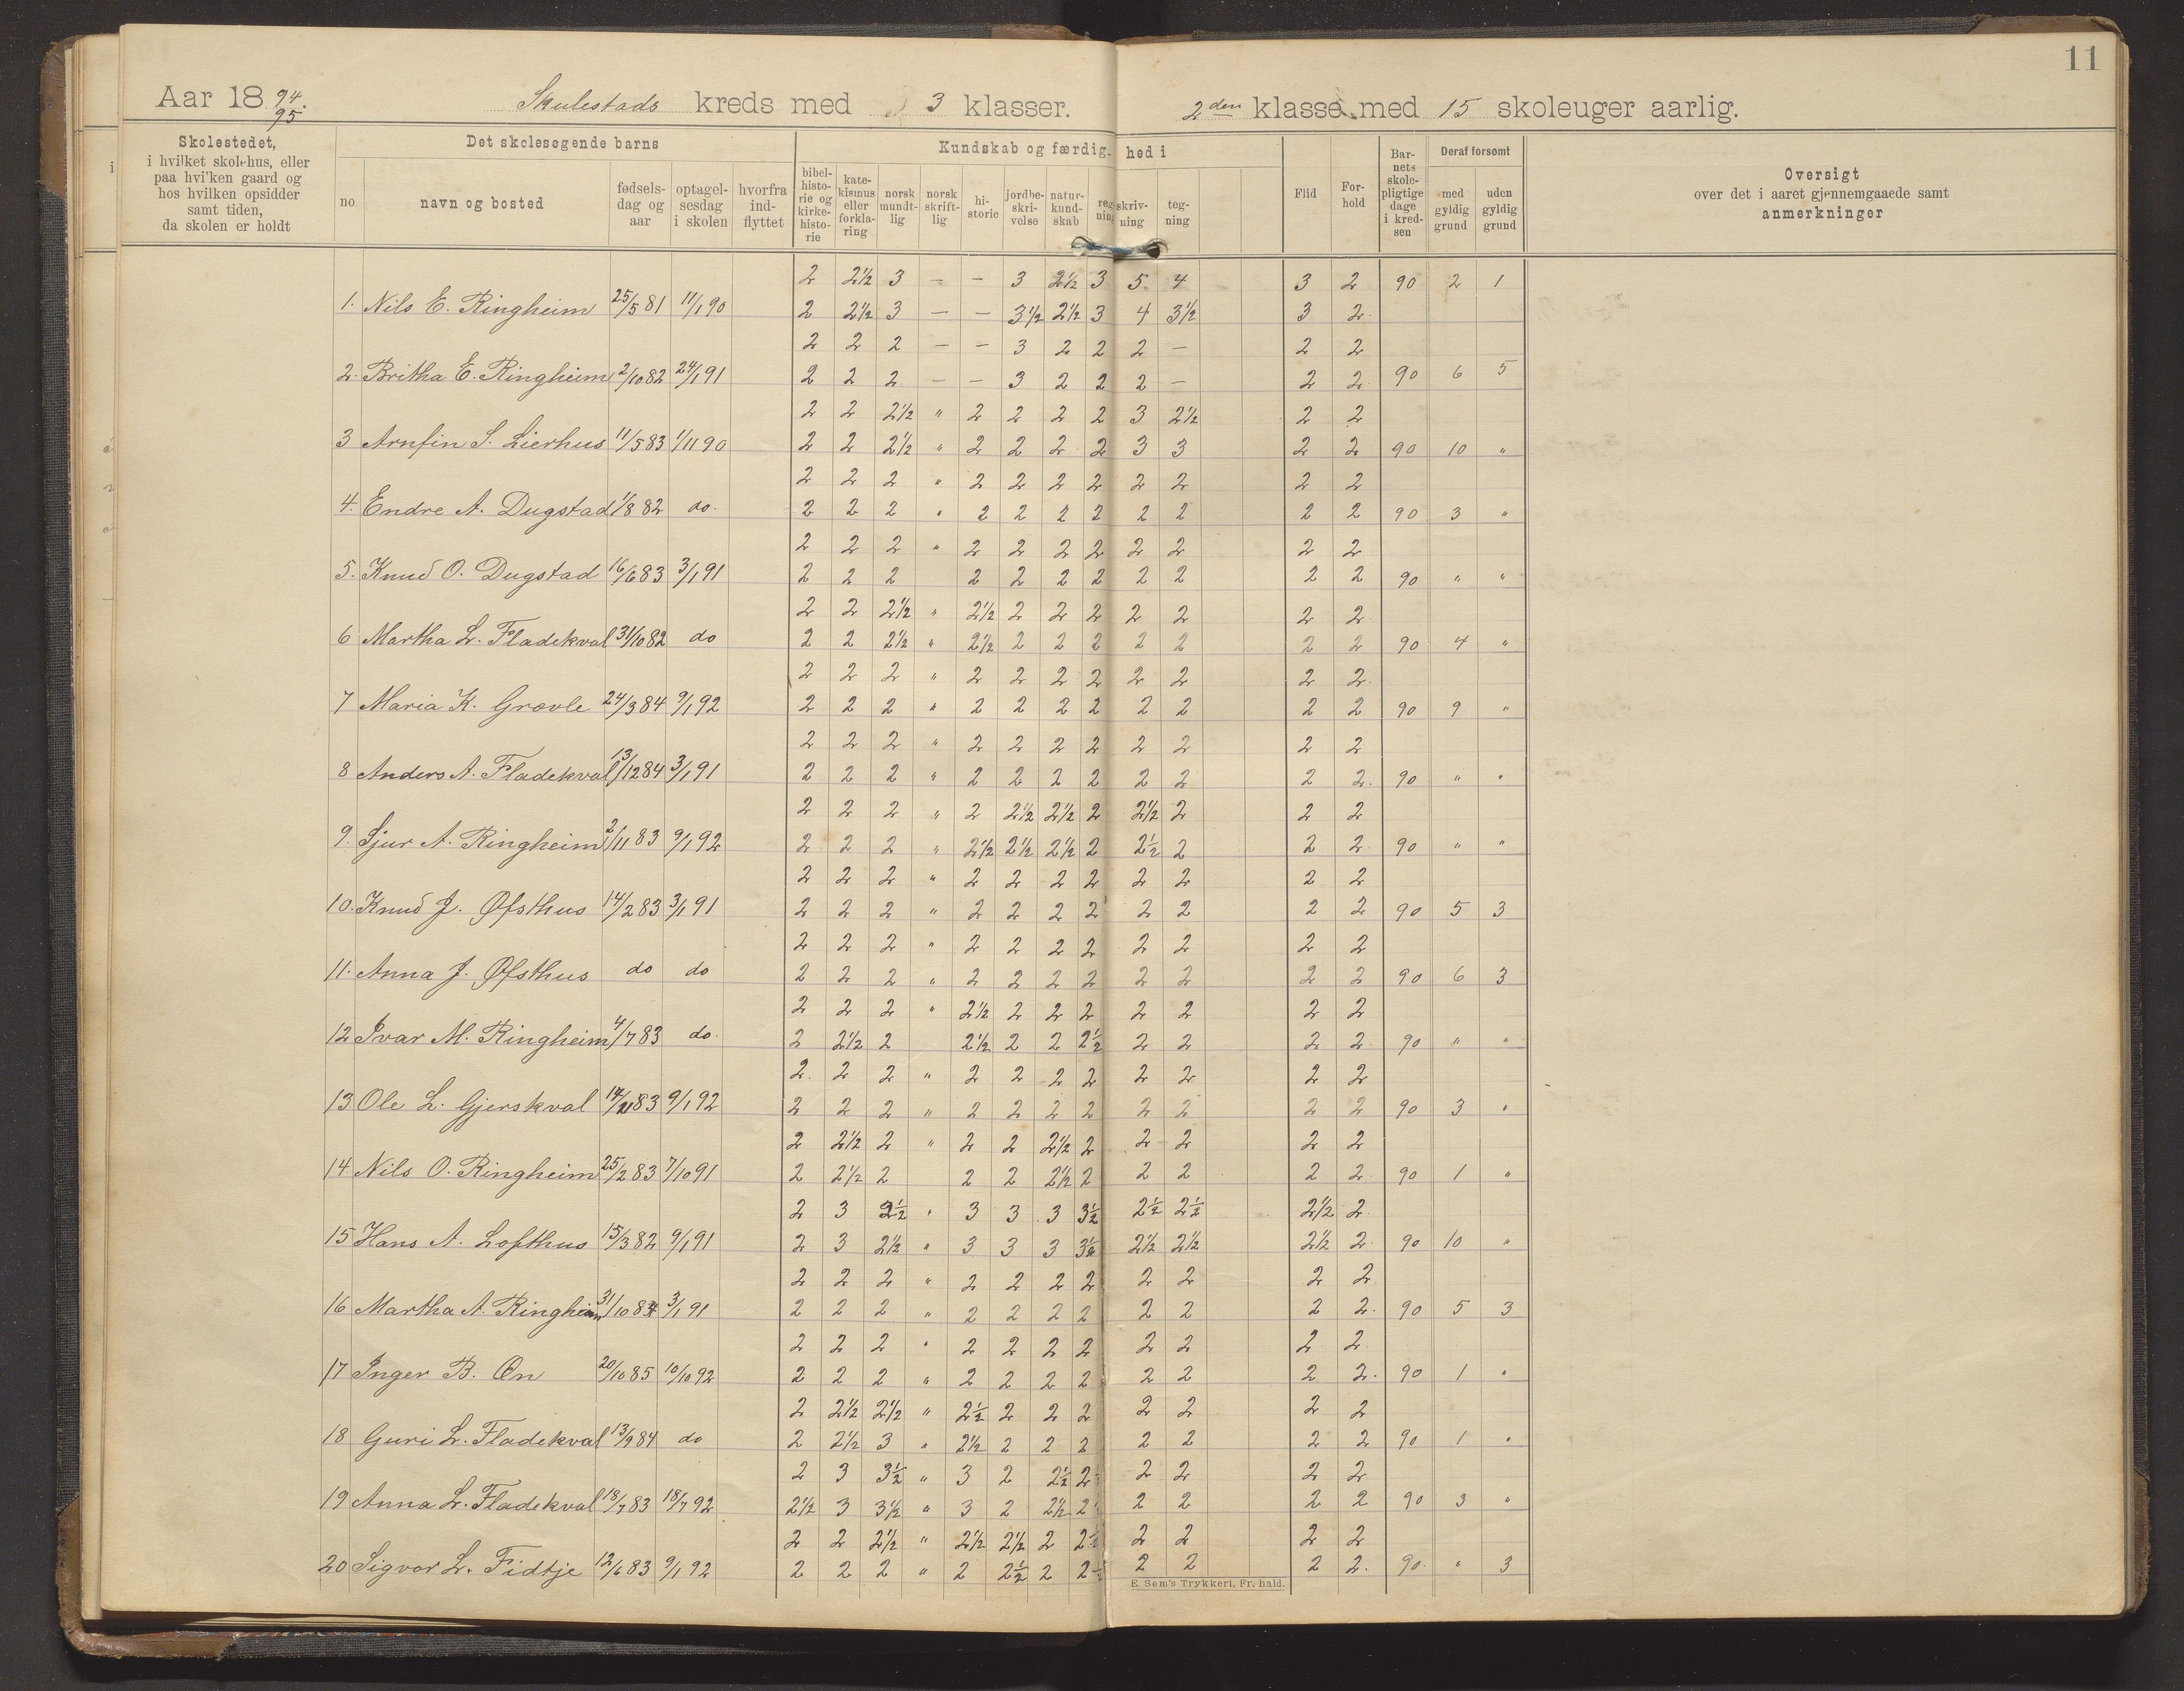 11
Aar 18 94/95. Skulestads kreds med 3 klasser. 2den klasse med 15 skoleuger aarlig.
Skolestedet, i hvilket skolehus, eller paa hvilken gaard og hos hvilken opsidder samt tiden, da skolen er holdt
Det skolesøgende barns
no. navn og bosted fødsels-dag og aar optagel-sesdag i skolen hvorfra ind-flyttet
Kundskab og færdighed i
bibel-histo-rie og kirke-histo-rie kate-kismus eller forkla-ring norsk mundt-lig norsk skrift-lig hi-storie jordbe-skri-velse natur-kund-skab reg-ning skriv-ning teg-ning
Flid For-hold Bar-nets skole-pligtige dage i kred-sen
Deraf forsømt
med gyldig grund uden gyldig grund
Oversigt
over det i aaret gjennemgaaede samt
anmerkninger
2 2½ 3 — — 3 2½ 3 5 4 3 2 90 2 1
1. Nils E. Ringheim 25/5 81 11/1 90 2 2½ 3 — — 3½ 2½ 3 4 3½ 3 2.
2 2 2 — — 3 2 2 2 — 2 2
2. Britha E. Ringheim 2/10 82 24/1 91 2 2 2 — — 3 2 2 2 — 2 2. 90 6 5
2 2 2½ " 2 2 2 2 3 2½ 2 2
3 Arnfin S. Lierhus 11/5 83 1/11 90 2 2 2½ " 2 2 2 2 3 3 2 2 90 10 "
2 2 2 " 2 2 2 2 2 2 2 2
4. Endre A. Dugstad 1/8 82 do. 2 2 2 " 2 2 2 2 2 2 2 2 90 3 "
2 2 2 " 2 2 2 2 2 2 2 2
5. Knud O. Dugstad 16/6 83 3/1 91 2 2 2 2 2 2 2 2 2 2 2 90 " "
2 2 2½ " 2½ 2 2 2 2 2 2 2
6 Martha L. Fladekval 31/10 82 do 2 2 2½ " 2½ 2 2 2 2 2 2 2 90 4 "
2 2 2 " 2 2 2 2 2 2 2 2
7 Maria K. Grovle 24/3 84 9/1 92 2 2 2 " 2 2 2 2 2 2 2 2 90 9 "
2 2 2 " 2 2 2 2 2 2 2 2
8 Anders A. Fladekval 13/12 84 3/1 91 2 2 2 " 2 2 2 2 2 2 2 2. 90 " "
2 2 2 " 2 2½ 2½ 2 2½ 2 2 2
9. Sjur A. Ringheim 2/11 83 9/1 92 2 2 2 " 2½ 2½ 2½ 2 2½ 2 2 2. 90 " "
2 2 2 " 2 2 2 2 2 2 2 2
10. Knud J. Øfsthus 14/2 83 3/1 91 2 2 2 " 2 2 2 2 2 2 2 2 90 5 3
2 2 2 " 2 2 2 2 2 2 2 2
11. Anna J. Øfsthus do do 2 2 2 " 2 2 2 2 2 2 2 2 90 6 3
2 2 2 " 2½ 2 2 2 2 2 2 2
12 Ivar M. Ringheim 4/7 83 do. 2 2½ 2 2½ 2 2 2½ 2 2 2 2. 90 " "
2. 2 2 " 2 2 2 2 2 2 2 2
13 Ole L. Gjerskval 83 9/1 92 2 2 2 " 2 2 2 2 2 2 2 2 90 3 "
2 2½ 2 " 2 2 2½ 2 2 2 2 2
14. Nils O. Ringheim 25/2 83 7/10 91 2 2½ 2 2 2 2½ 2 2 2 2 2. 90 1 "
2 3 2½ " 3 3 3 3½ 2½ 2½ 2½ 2.
15 Hans A. Lofthus 15/3 82 9/1 91 2 3 2½ " 3 3 3 3½ 2½ 2½ 2½ 2. 90 10 "
2 2 2 " 2 2 2 2 2 2 2 2
16 Martha A. Ringheim 31/10 84 3/1 91 2 2 2 " 2 2 2 2 2 2 2 2. 90 5 3
2 2 2 " 2 2 2 2 2 2 2 2
17 Inger B. Øn 20/10 85 10/10 92 2 2 2 " 2 2 2 2 2 2 2 2. 90 1 "
2 2½ 2½ " 2½ 2 2 2 2 2 2 2
18 Guri L. Fladekval 13/9 84 do 2 2½ 3 " 2½ 2 2 2 2 2 2 2 90 1 "
2 3 3½ " 3 2 2½ 2½ 2 2 2 2
19 Anna L. Fladekval 18/7 83 18/7 92 2½ 3 3½ " 3 2 2½ 2½ 2 2 2 2 90 3 "
2 2 2½ " 2½ 2½ 2 2½ 2 2 2 2
20 Sigvor L. Fidtje 12/6 83 9/1 92 2 2 2 " 2 2½ 2 2½ 2 2 2 2. 90. " 3
E. Sem's Trykkeri, Fr. hald.